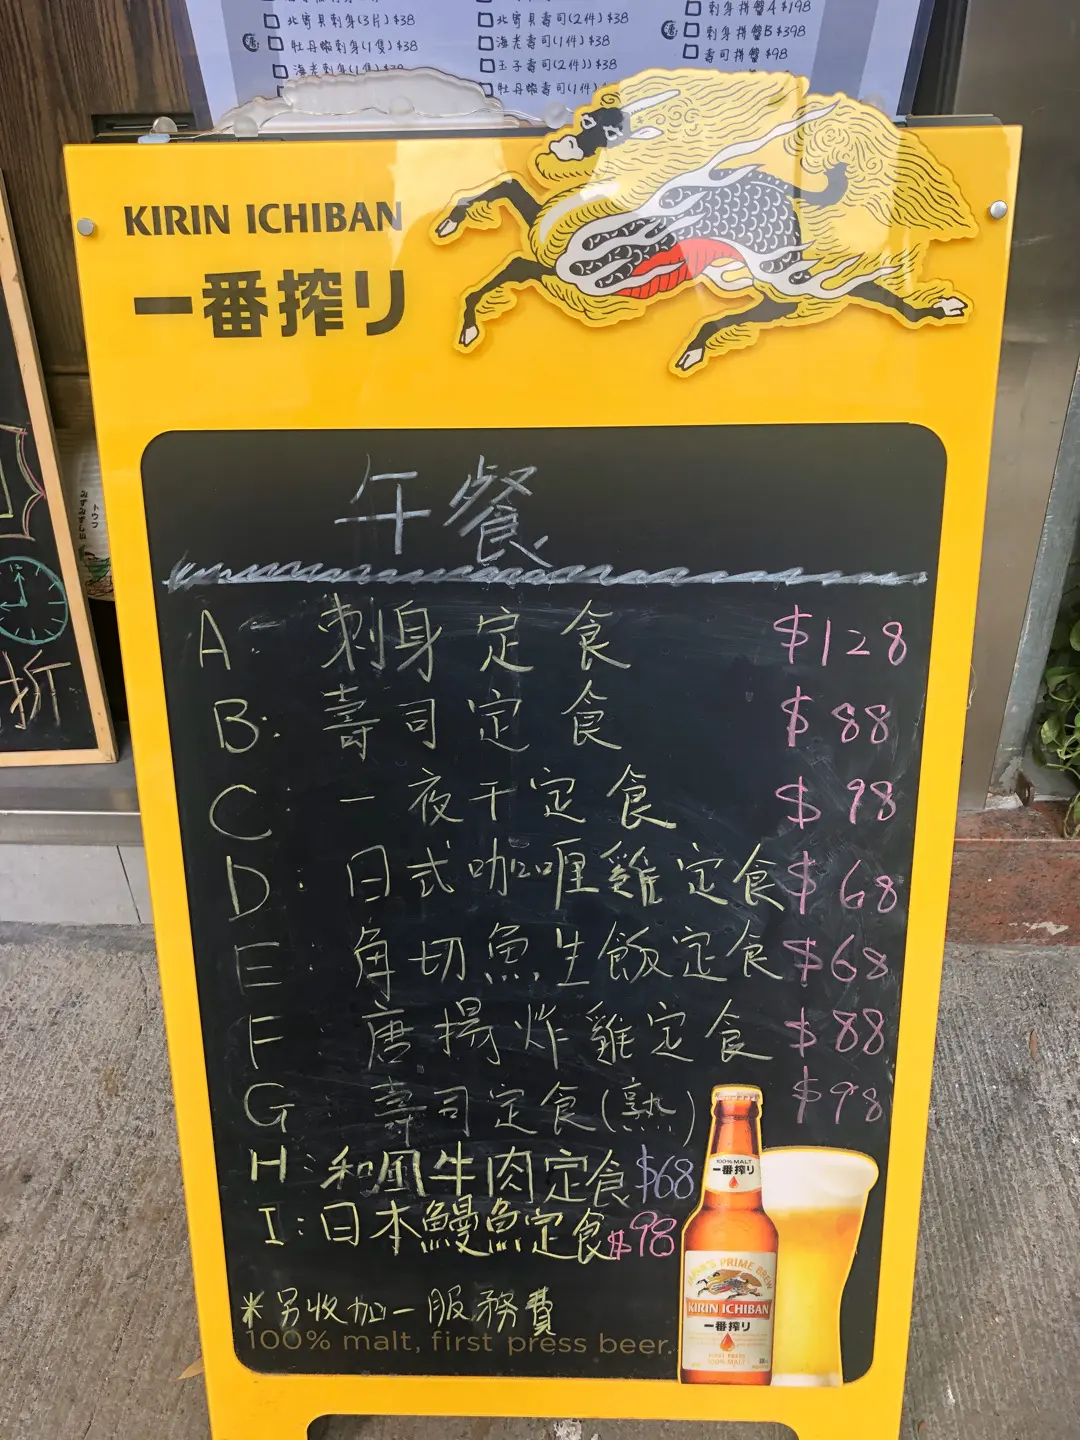 北寄貝刺身(3片)$38
牡丹蝦刺身(1隻)$38
海老刺身(1隻)$38
北寄貝壽司(2件)$38
海老壽司(1件)$38
玉子壽司(2件)$38
牡丹蝦壽司(1件)
刺身拼盤A $198
刺身拼盤B $398
壽司拼盤 $98
KIRIN ICHIBAN
一番搾り
午餐
A: 刺身定食 $128
B: 壽司定食 $88
C: 一夜干定食 $98
D: 日式咖喱雞定食 $68
E: 角切魚生飯定食 $68
F: 唐揚炸雞定食 $88
G: 壽司定食(熟) $98
H: 和風牛肉定食 $68
I: 日本鰻魚定食 $98
*另收加一服務費
100% malt, first press beer.
100% MALT
一番搾り
JAPAN'S PRIME BREW
KIRIN ICHIBAN
一番搾り
FIRST PRESS
100% MALT
折